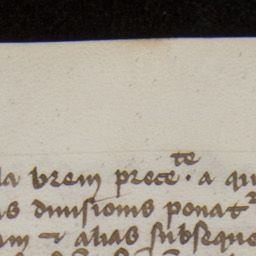 la brem prece te. a qu
is diuisionis ponat
am & alias subseque